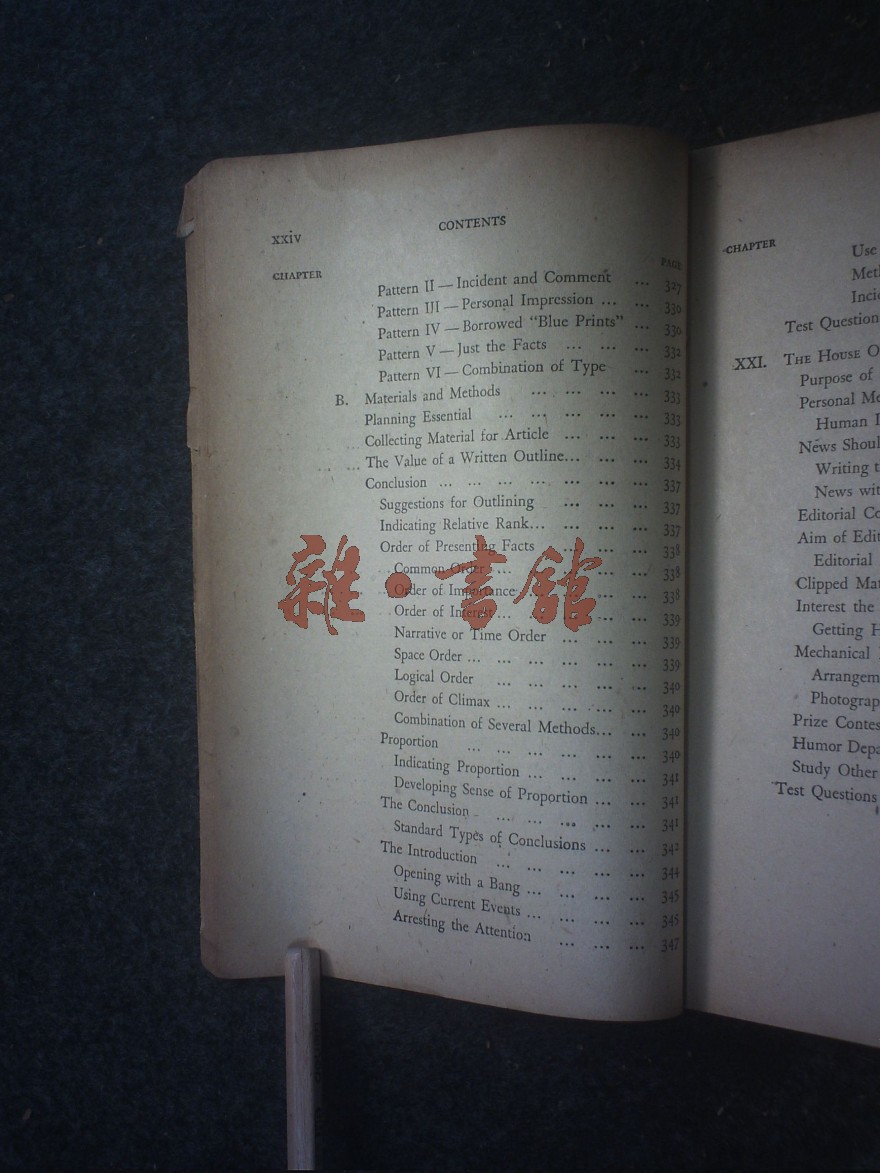 xxiv CONTENTS
CHAPTER PAGE
Pattern II — Incident and Comment ... 327
Pattern III — Personal Impression ... ... 330
Pattern IV — Borrowed "Blue Prints" ... 330
Pattern V — Just the Facts ... ... ... 331
Pattern VI — Combination of Type ... 332
B. Materials and Methods ... ... ... ... 333
Planning Essential ... ... ... ... ... 333
Collecting Material for Article ... ... ... 333
The Value of a Written Outline... ... ... 334
Conclusion ... ... ... ... ... ... ... 337
Suggestions for Outlining ... ... ... 337
Indicating Relative Rank... ... ... ... 337
Order of Presenting Facts ... ... ... 338
Common Order ... ... ... ... ... 338
Order of Importance ... ... ... ... 338
Order of Interest ... ... ... ... ... 339
Narrative or Time Order ... ... ... 339
Space Order ... ... ... ... ... ... 339
Logical Order ... ... ... ... ... 340
Order of Climax ... ... ... ... ... 340
Combination of Several Methods... ... 340
Proportion ... ... ... ... ... ... 340
Indicating Proportion ... ... ... ... 341
Developing Sense of Proportion ... ... 341
The Conclusion ... ... ... ... ... 341
Standard Types of Conclusions ... ... 342
The Introduction ... ... ... ... ... 344
Opening with a Bang ... ... ... ... 345
Using Current Events ... ... ... ... 345
Arresting the Attention ... ... ... 347
雜·書舘
CHAPTER
Use
Incid
Test Question
XXI. THE HOUSE O
Purpose of
Personal Me
Human I
News Shoul
Writing t
News wit
Editorial Co
Aim of Edit
Editorial
Clipped Mat
Interest the
Getting H
Mechanical
Arrangem
Photograp
Prize Contes
Humor Depa
Study Other
Test Questions